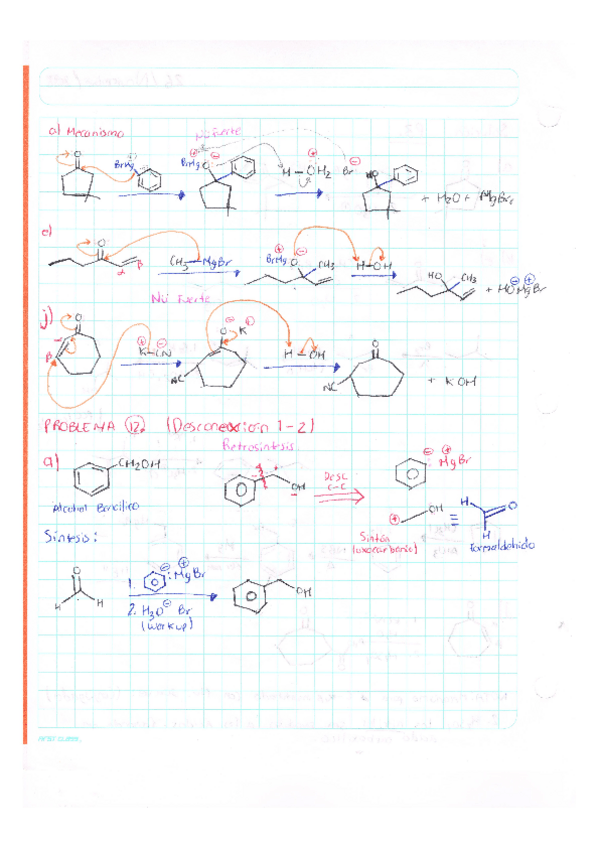 a) Mecanismo
Nü fuerte
O BrMg BrMg O H – OH2 Br HO + H2O + MgBr2
e)
O α β CH3 – MgBr BrMg O CH3 H – OH HO CH3 + HO MgBr
Nü Fuerte
j)
O β K – CN O K NC H – OH O NC + KOH
PROBLEMA 12. (Desconexión 1-2)
Retrosíntesis
a) CH2OH OH DESC C-C MgBr
Alcohol Bencílico
OH ≡ H H O
Sintón (oxocarbenio) Formaldehído
Síntesis:
O H H 1. MgBr OH
2. H3O Br
(workup)